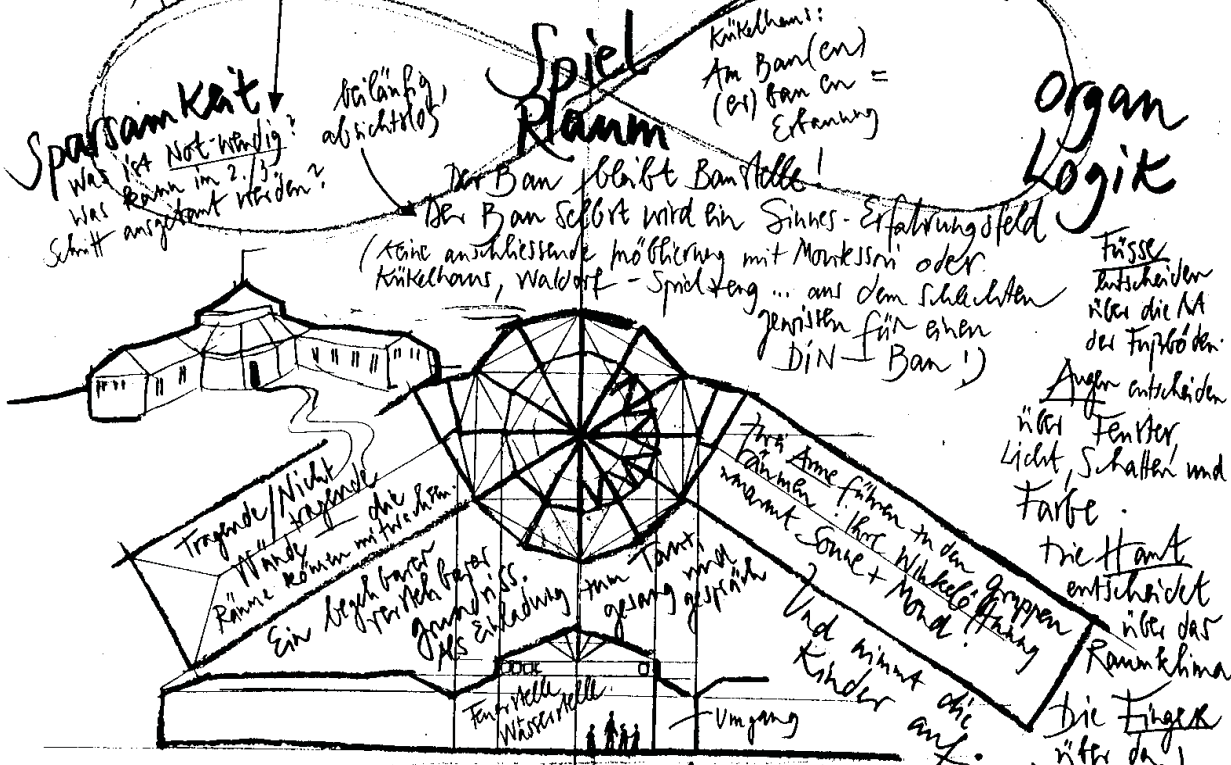 Sparsamkeit
Was ist Not-wendig?
Was kann im 2./3.
Schritt ausgebaut werden?
beiläufig,
absichtslos
Spiel
Raum
Kükelhaus:
Am Bau(en)
(er)bauen =
Erbauung
Organ
Logik
Der Bau bleibt Baustelle!
Der Bau selbst wird ein Sinnes-Erfahrungsfeld
(Keine anschliessende Möblierung mit Montessori oder
Kükelhaus, Waldorf-Spielzeug ... aus dem schlechten
gewissen für einen
DiN-Bau!)
Füsse
entscheiden
über die Art
der Fußböden.
Augen entscheiden
über Fenster,
Licht, Schatten und
Farbe.
Die Haut
entscheidet
über das
Raumklima
Die Finger
über da
Tragende/Nicht
tragende
Wände – die
Räume können mitwachsen
Ein begehbarer
verstehbarer
grundriss.
Als Einladung zum Tanz,
gesang und
gespräch
Ihre Arme führen zu den gruppen
räumen. Ihre Winkelöffnung
umarmt Sonne + Mond.
Und nimmt die
Kinder auf.
Feuerstelle
Wasserstelle
Umgang